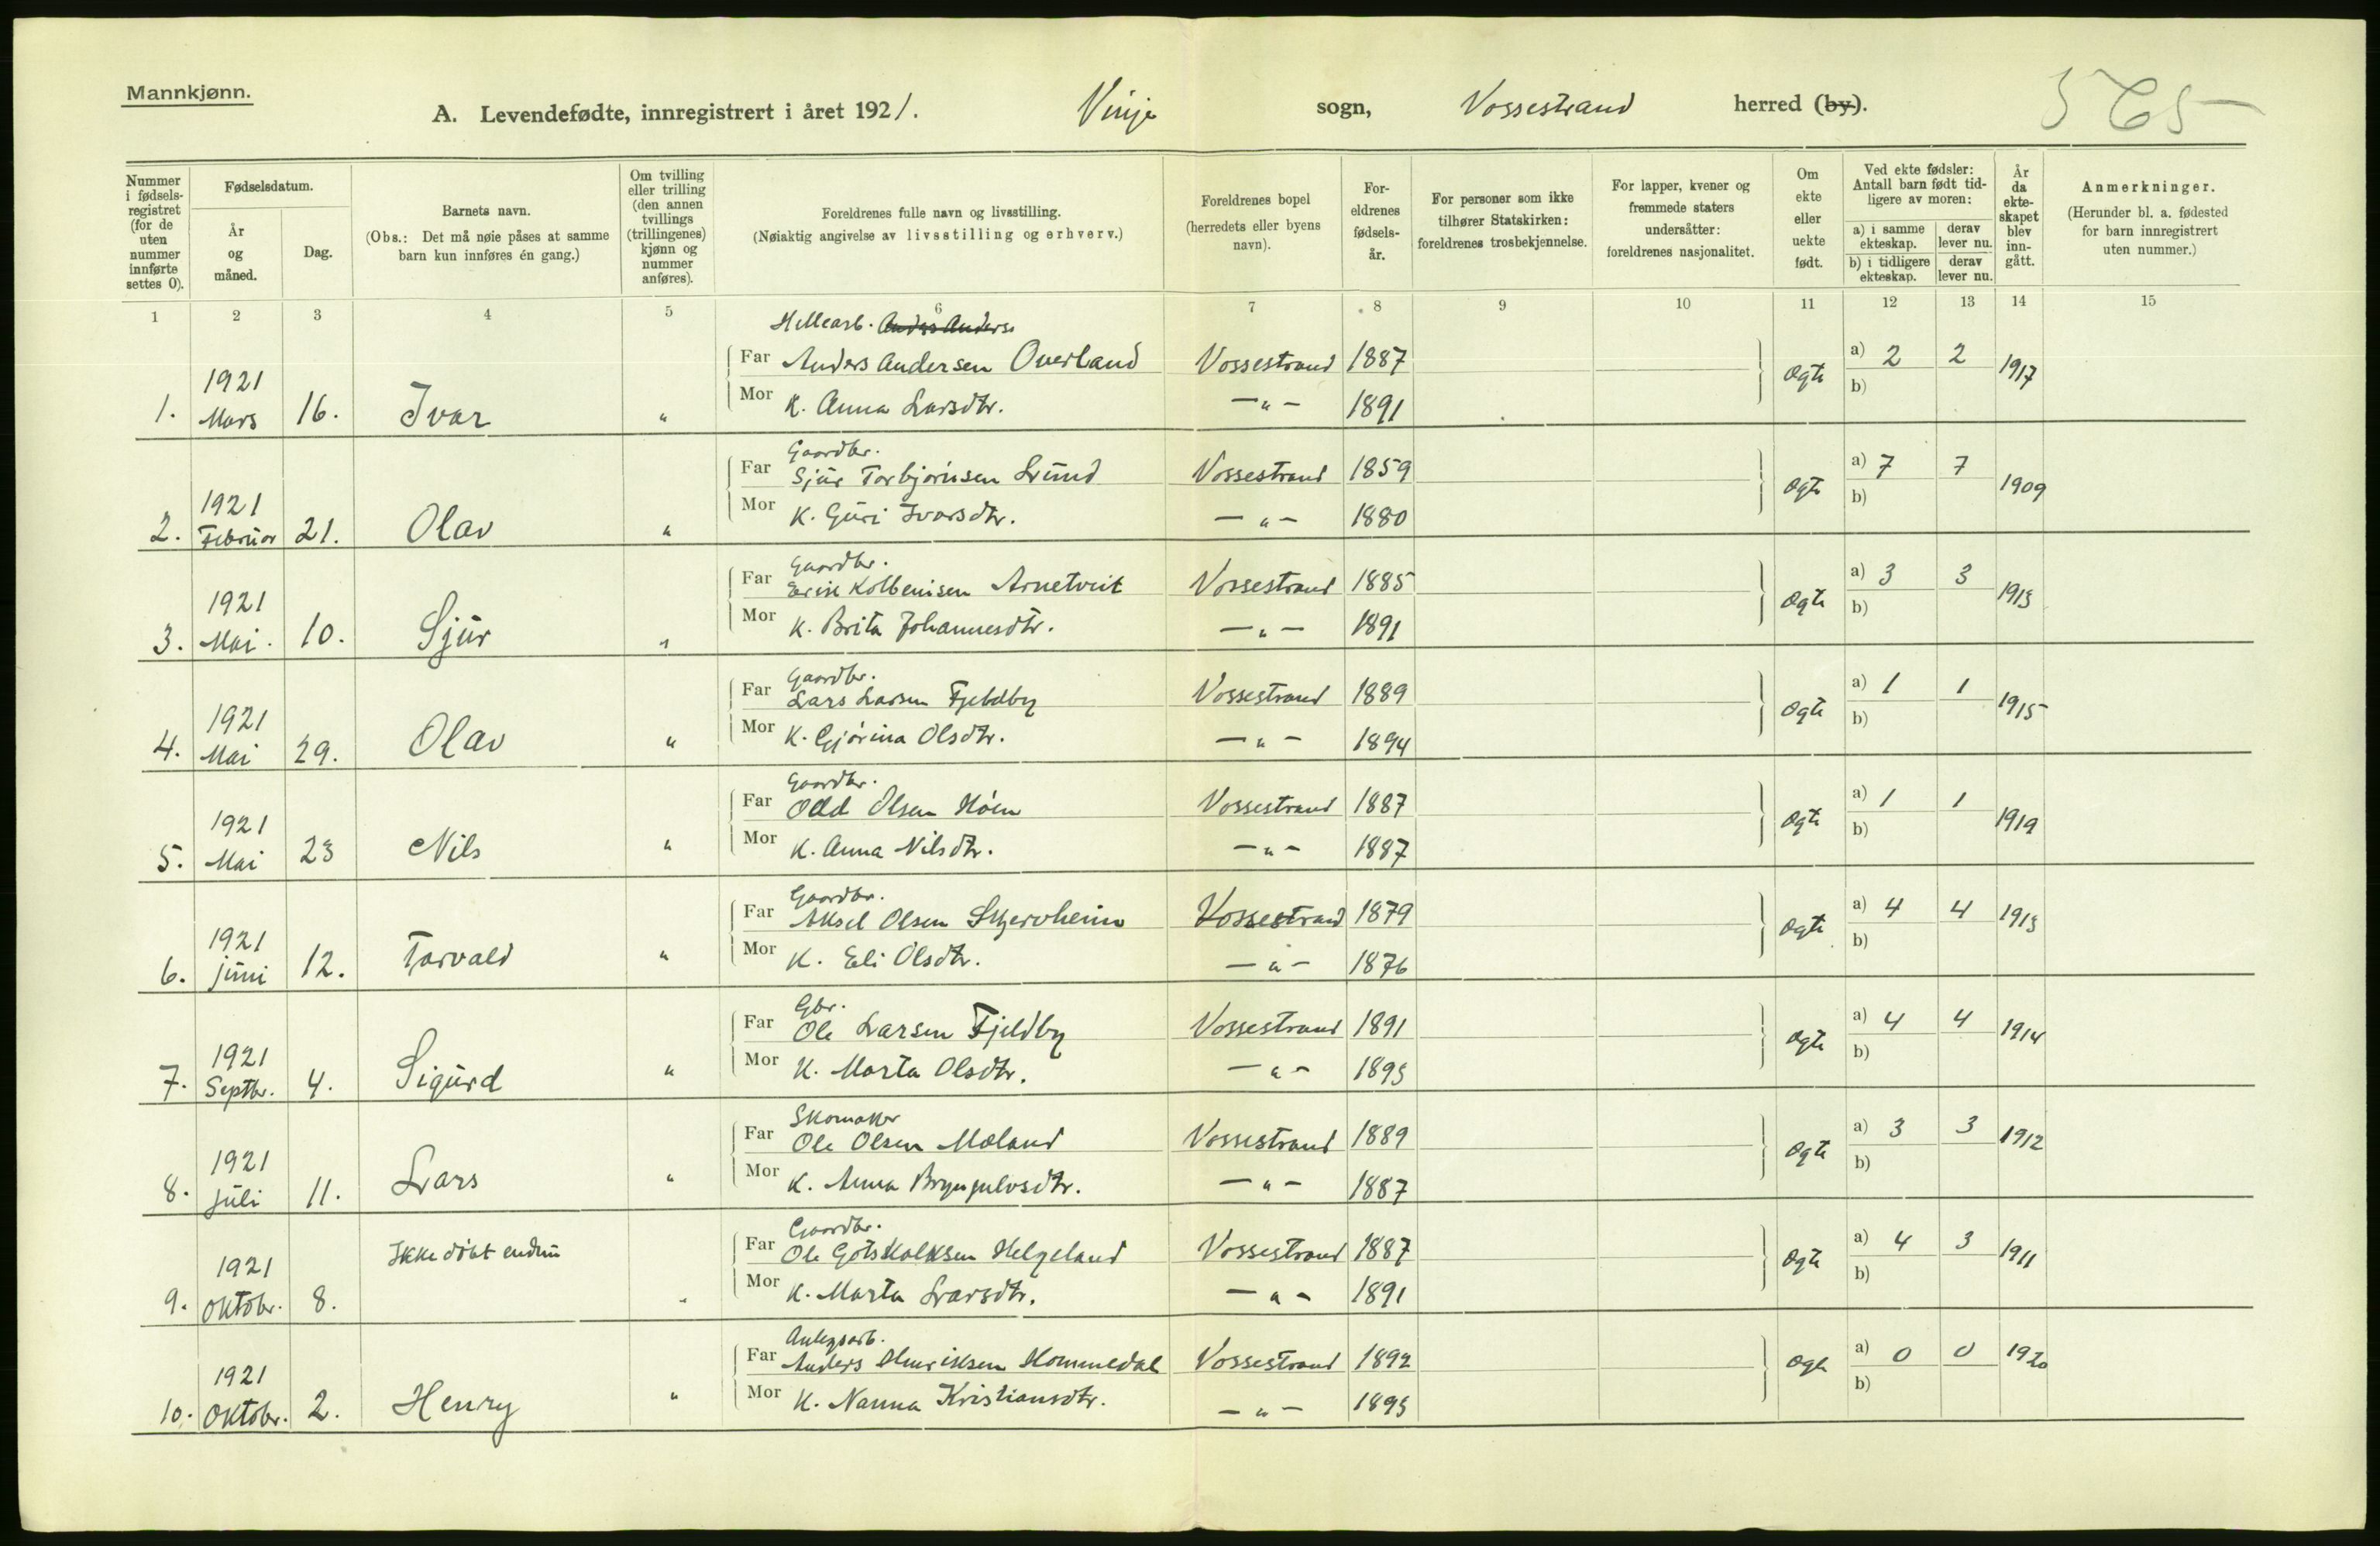 Mannkjønn.
A. Levendefødte, innregistrert i året 1921. Vinje sogn, Vossestrand herred (by). 565
Nummer i fødsels-registret (for de uten nummer innførte settes 0).
Fødselsdatum.
År og måned.
Dag.
Barnets navn.
(Obs.: Det må nøie påses at samme barn kun innføres én gang.)
Om tvilling eller trilling (den annen tvillings (trillingenes) kjønn og nummer anføres).
Foreldrenes fulle navn og livsstilling.
(Nøiaktig angivelse av livsstilling og erhverv.)
Foreldrenes bopel
(herredets eller byens navn).
For-eldrenes fødsels-år.
For personer som ikke tilhører Statskirken: foreldrenes trosbekjennelse.
For lapper, kvener og fremmede staters undersåtter: foreldrenes nasjonalitet.
Om ekte eller uekte født.
Ved ekte fødsler: Antall barn født tid-ligere av moren:
a) i samme ekteskap.
derav lever nu.
b) i tidligere ekteskap.
derav lever nu.
År da ekte-skapet blev inn-gått.
Anmerkninger.
(Herunder bl. a. fødested for barn innregistrert uten nummer.)
1 2 3 4 5 6 7 8 9 10 11 12 13 14 15
Hellearb. Anders Anders
Far Anders Andersen Overland Vossestrand 1887 a) 2 2
1. 1921 Mars 16. Ivar " Ogte 1917
Mor K. Anna Larsdtr. — " — 1891 b)
Gaardbr.
Far Sjur Torbjørnsen Lund Vossestrand 1859 a) 7 7
2. 1921 Februar 21. Olav " Ogte 1909
Mor K. Guri Ivarsdtr. — " — 1880 b)
Gaardbr.
Far Kolbeinsen Arnetveit Vossestrand 1885 a) 3 3
3. 1921 Mai. 10. Sjur " Ogte 1913
Mor K. Brita Johannesdtr. — " — 1891 b)
Gaardbr.
Far Lars Larsen Fjeldby Vossestrand 1889 a) 1 1
4. 1921 Mai 29. Olav " Ogte 1915
Mor K. Gjørina Olsdtr. — " — 1894 b)
Gaardbr.
Far Odd Olsen Høen Vossestrand 1887 a) 1 1
5. 1921 Mai 23 Nils " Ogte 1919
Mor K. Anna Nilsdtr. — " — 1887 b)
Gaardbr.
Far Aksel Olsen Skjervheim Vossestrand 1879 a) 4 4
6. 1921 juni 12. Torvald " Ogte 1913
Mor K. Eli Olsdtr. — " — 1876 b)
Gbr.
Far Ole Larsen Fjeldby Vossestrand 1891 a) 4 4
7. 1921 Septbr. 4. Sigurd " Ogte 1914
Mor K. Marta Olsdtr. — " — 1893 b)
Skomaker
Far Ole Olsen Møland Vossestrand 1889 a) 3 3
8. 1921 juli 11. Lars " Ogte 1912
Mor K. Anna Brynjulvsdtr. — " — 1887 b)
Gaardbr.
Far Ole Gotskalksen Helgeland Vossestrand 1887 a) 4 3
9. 1921 Oktobr. 8. Ikke døbt endnu " Ogte 1911
Mor K. Marta Larsdtr. — " — 1891 b)
Anlegsarb.
Far Anders Henriksen Hommedal Vossestrand 1892 a) 0 0
10. 1921 Oktobr. 2. Henry " Ogte 1920
Mor K. Nanna Kristiansdtr. — " — 1893 b)